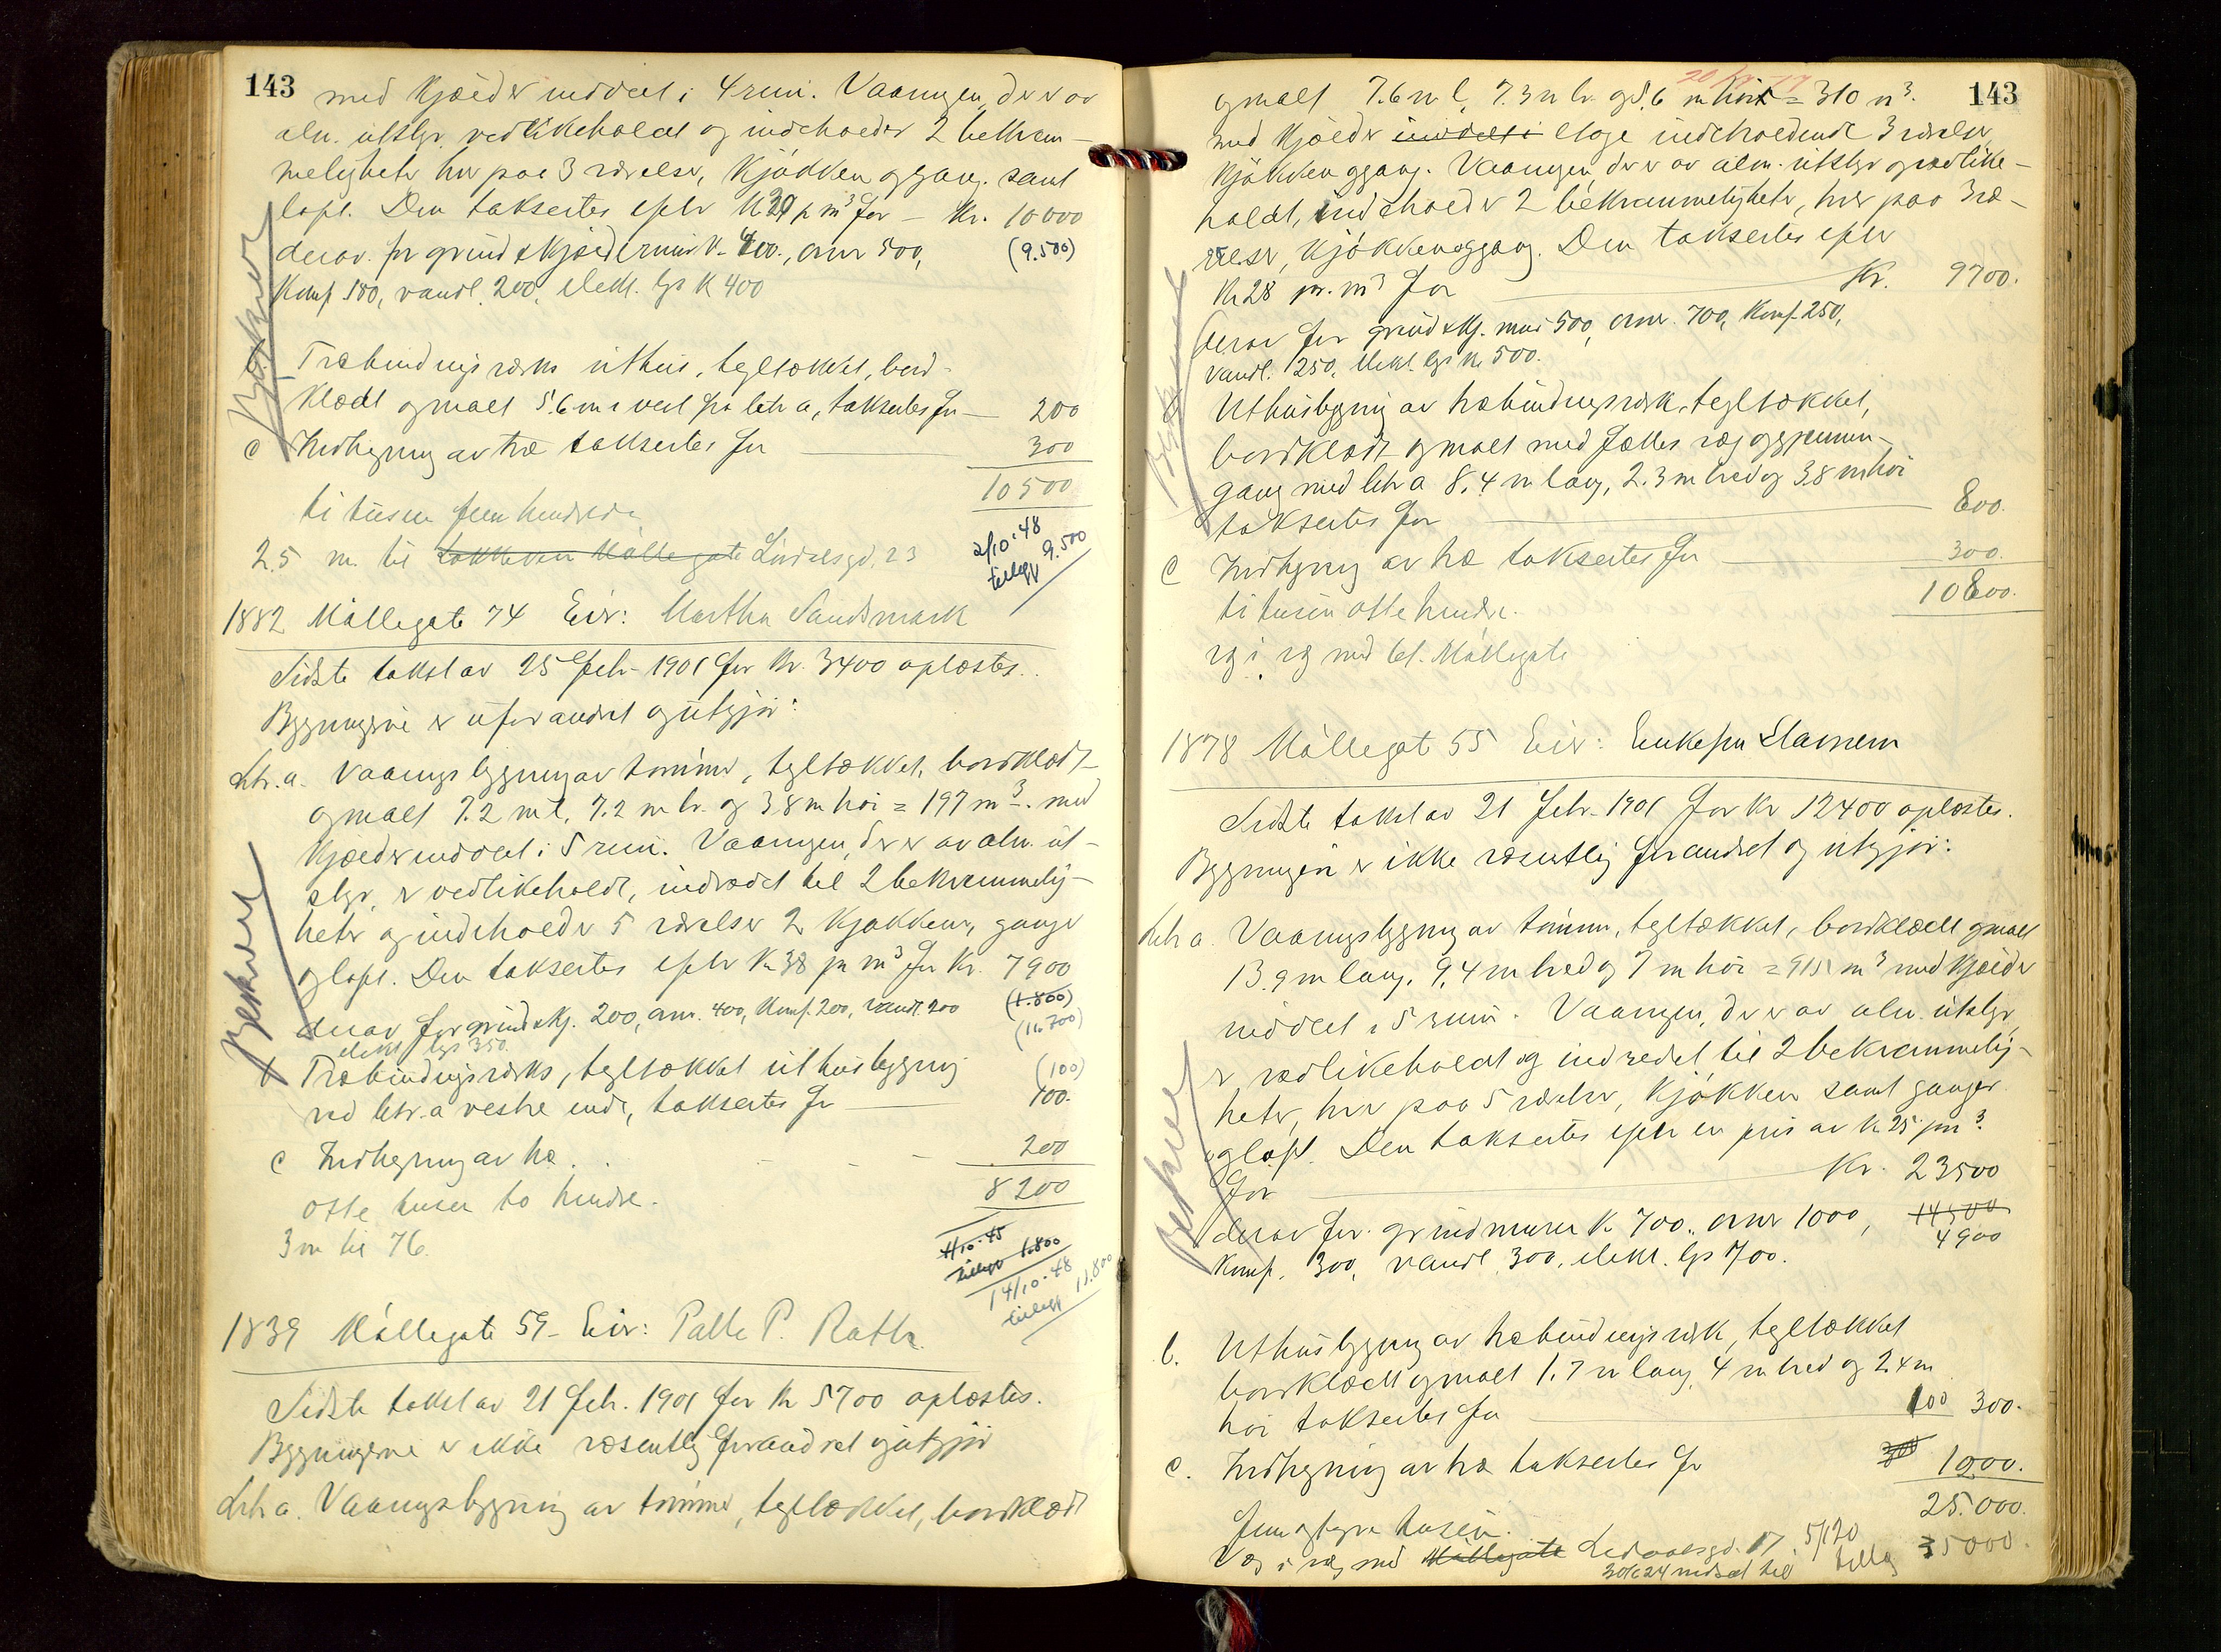 143
med Kjæld er inddeelt i 4 rum. Vaaningen, der er av
alm. utstyr, vedlikeholdt og indeholder 2 bekvem-
meligheter hver paa 3 værelser, Kjøkken og gang samt
loft. Den takseres efter Kr 29 pr m³ for — Kr. 10000
derav for grund & Kjældermur K. 400., ovner 500, (9.500)
Komf 300, vandl. 200, elekt. lys K 400
Bejskrevet
Træbindingsverks uthus, tegltækket, bord-
klædt og malt 5.6 m i vest fra letr a, takseres for — 200
c Indhegning av træ takseres for — 300
10500
ti tusen fem hundrede
2/10-48
tillegg 9.500
2.5 m. til Møllegate Lindalsgd. 23
1882 Møllegate 74 Eier: Martha Sandsmark
Sidste takst av 25 Febr. 1901 for Kr. 3400 oplæstes.
Bygningerne er uforandret og utgjør:
Litr. a. Vaaningsbygning av tømmer, tegltækket, bordklædt
og malt 7.2 m l, 7.2 m br. og 3.8 m høi = 197 m³. med
Kjælder inddelt i 5 rum. Vaaningen, der er av alm. ut-
styr, er vedlikeholdt, indredet til 2 bekvemmelig-
heter og indeholder 5 værelser 2 Kjøkkener, ganger
og loft. Den takseres efter Kr 38 pr m³ for Kr. 7900
derav for grund & Kj. 200, ovn. 400, Komf. 200, vandl. 200 (1.800)
elekt lys 350. (11.700)
b Træbindingsverks, tegltækket uthusbygning (100)
ved letr. a vestre ende, takseres for — 100.
c Indhegning av træ. . - - - 200
8200
otte tusen to hundre.
3 m til 76.
4/10-45
tillegg 1.800
14/10-48
tillegg 11.800
1839 Møllegate 59 - Eier: Palle P. Rott
Sidste takst av 21 Febr. 1901 for Kr 5700 oplæstes.
Bygningerne er ikke væsentlig forandret og utgjør
Litr a. Vaaningsbygning av tømmer, tegltækket, bordklædt
143
og malt 7.6 m l, 7.3 m br. og 5.6 m høi = 310 m³.
med Kjælder inddelt i etage indeholdende 3 værelser
Kjøkken og gang. Vaaningen, der er av alm. utstyr og vedlike-
holdt, indeholder 2 bekvemmeligheter, hver paa 3 væ-
relser, Kjøkken og gang. Den takseres efter
Kr 28 pr. m³ for — Kr. 9700.
derav for grund & Kj. mur 500, ovner. 700, Komf. 250,
vandl. 250, elekt. lys Kr. 500.
Uthusbygning av træbindingsverk, tegltækket,
bordklædt og malt med fælles væg og gjennem-
gang med letr a 8.4 m lang, 2.3 m bred og 3.8 m høi
takseres for — 800.
c Indhegning av træ takseres for — 300.
10800.
ti tusen otte hundre.
væg i væg med bl. Møllegate
1878 Møllegat 55 Eier: Enkefru Stamem
Sidste takst av 21 Febr. 1901 for Kr 12400 oplæstes.
Bygningen er ikke væsentlig forandret og utgjør:
Litr a. Vaaningsbygning av tømmer, tegltækket, bordklædt og malt
13.9 m lang, 9.4 m bred og 7 m høi = 915 m³ med Kjælder
inddelt i 5 rum. Vaaningen, der er av alm. utstyr,
er vedlikeholdt og indredet til 2 bekvemmelig-
heter, hver paa 5 værelser, Kjøkken samt ganger
og loft. Den takseres efter en pris av Kr 25 pr m³.
for — Kr. 23500
derav for. grundmurer K 700., ovner 1000, 14500
Komf. 300, vandl 300, elekt. lys 700. 4900
b. Uthusbygning av træbindingsverk, tegltækket
bordklædt og malt 1.7 m lang, 4 m bred og 2.4 m
høi takseres for — 100 300.
c. Indhegning av træ takseres for 300 1200.
25.000.
fem og tyve tusen.
Væg i væg med Møllegate Ledaalsgd. 17. 5/1 20 tillæg 35000.
30/6 24 nedsat til